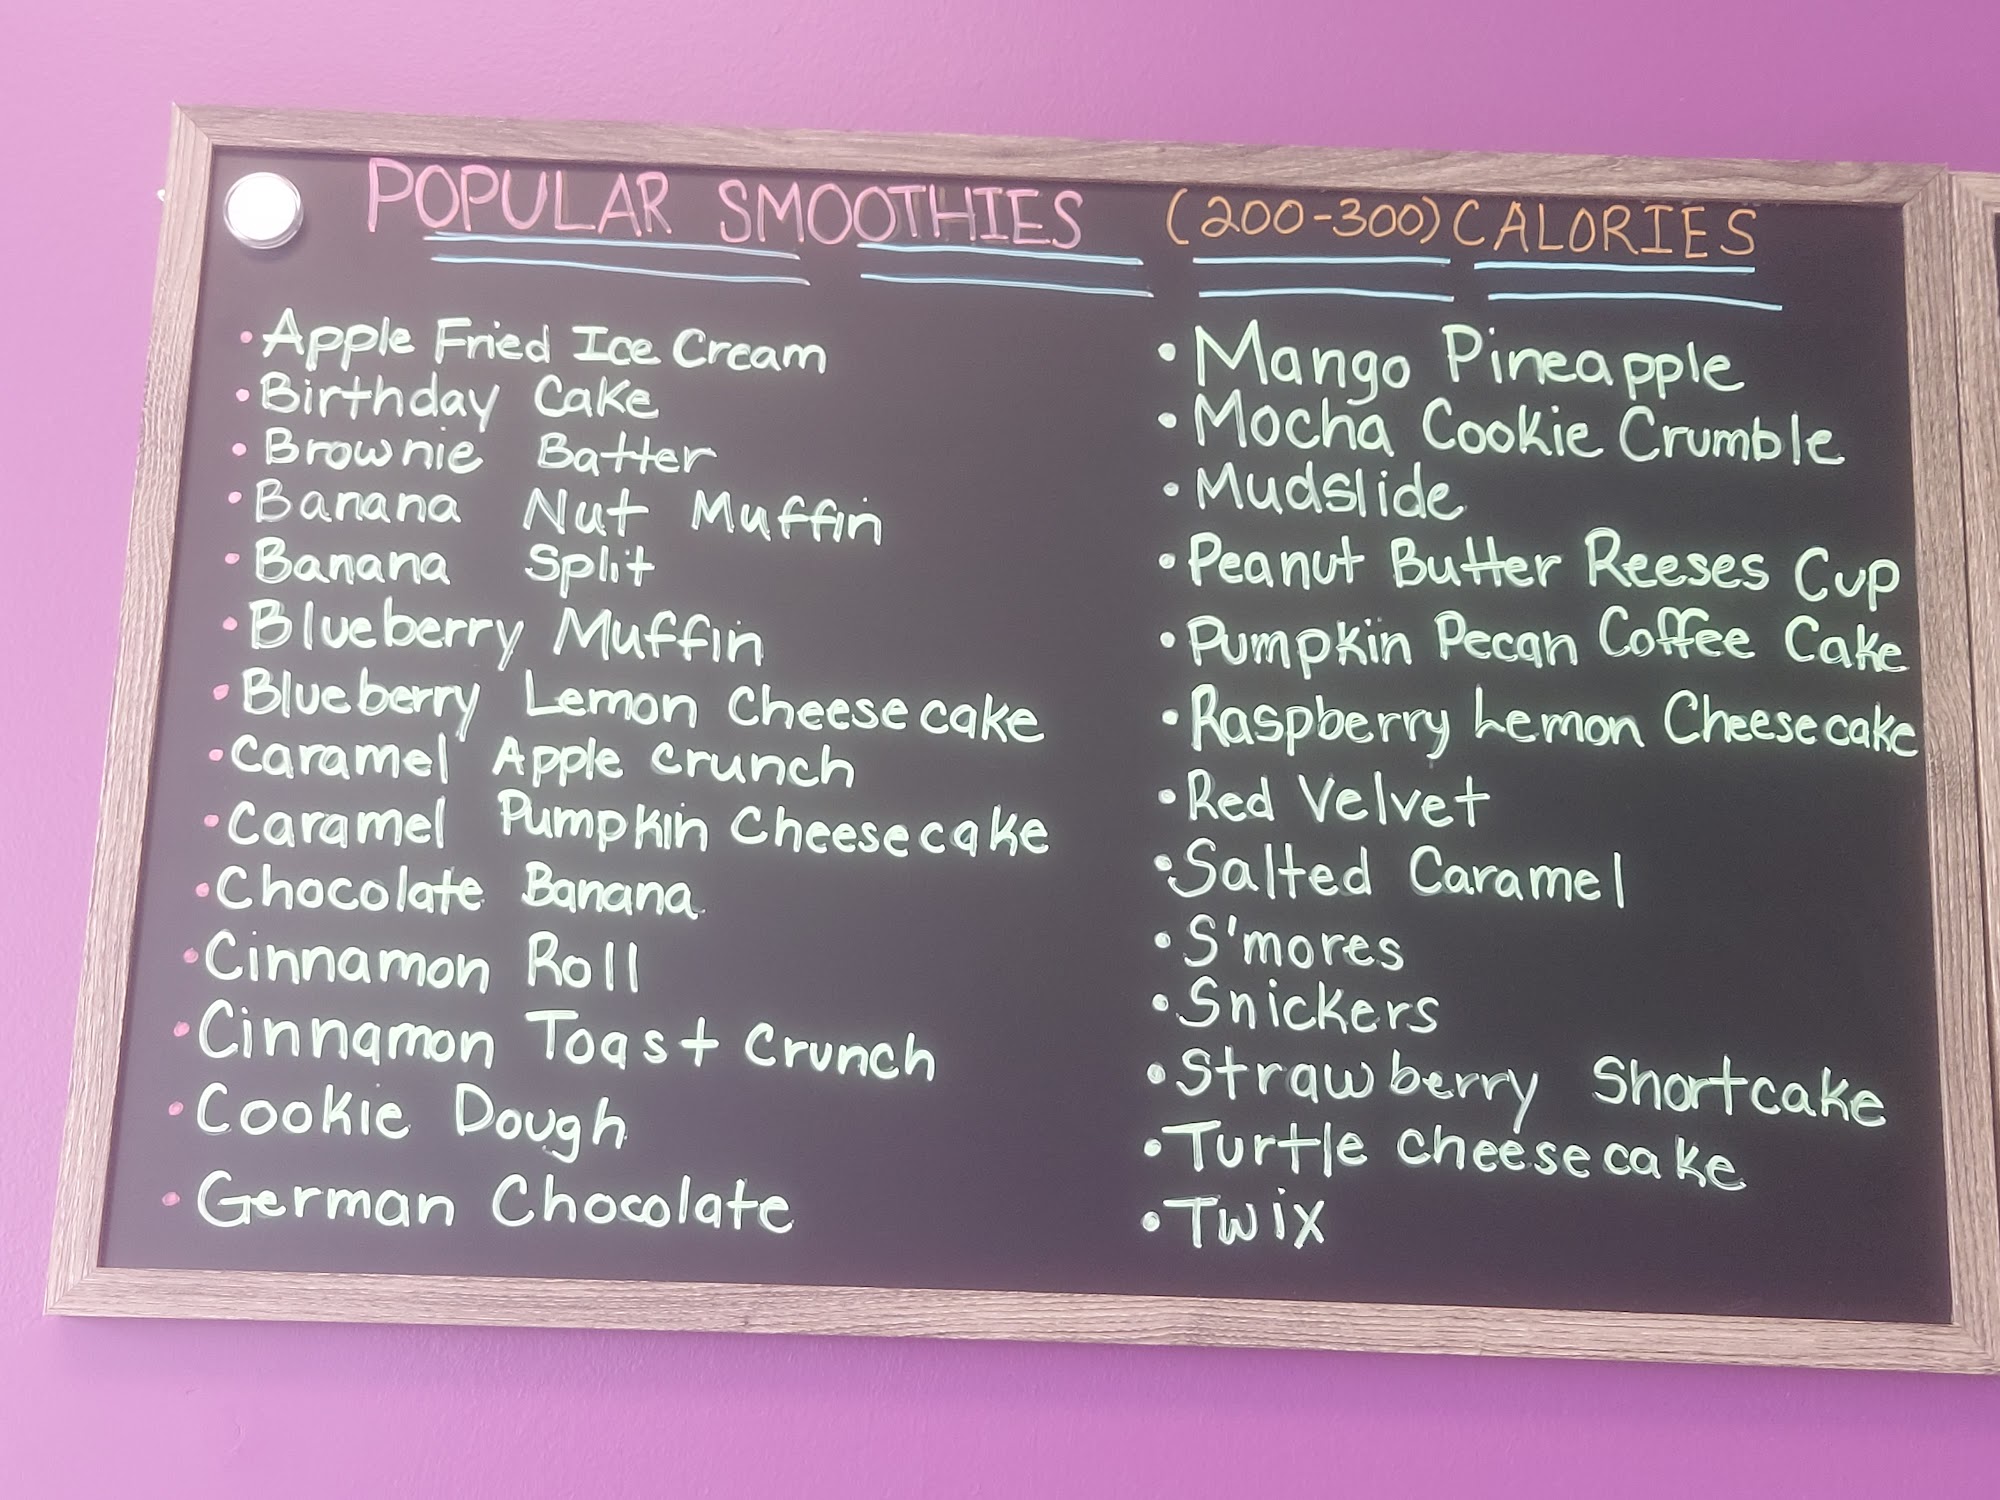 POPULAR SMOOTHIES (200-300) CALORIES
• Apple Fried Ice Cream
• Birthday Cake
• Brownie Batter
• Banana Nut Muffin
• Banana Split
• Blueberry Muffin
• Blueberry Lemon Cheesecake
• Caramel Apple Crunch
• Caramel Pumpkin Cheesecake
• Chocolate Banana
• Cinnamon Roll
• Cinnamon Toast Crunch
• Cookie Dough
• German Chocolate
• Mango Pineapple
• Mocha Cookie Crumble
• Mudslide
• Peanut Butter Reeses Cup
• Pumpkin Pecan Coffee Cake
• Raspberry Lemon Cheesecake
• Red Velvet
• Salted Caramel
• S'mores
• Snickers
• Strawberry Shortcake
• Turtle Cheesecake
• Twix